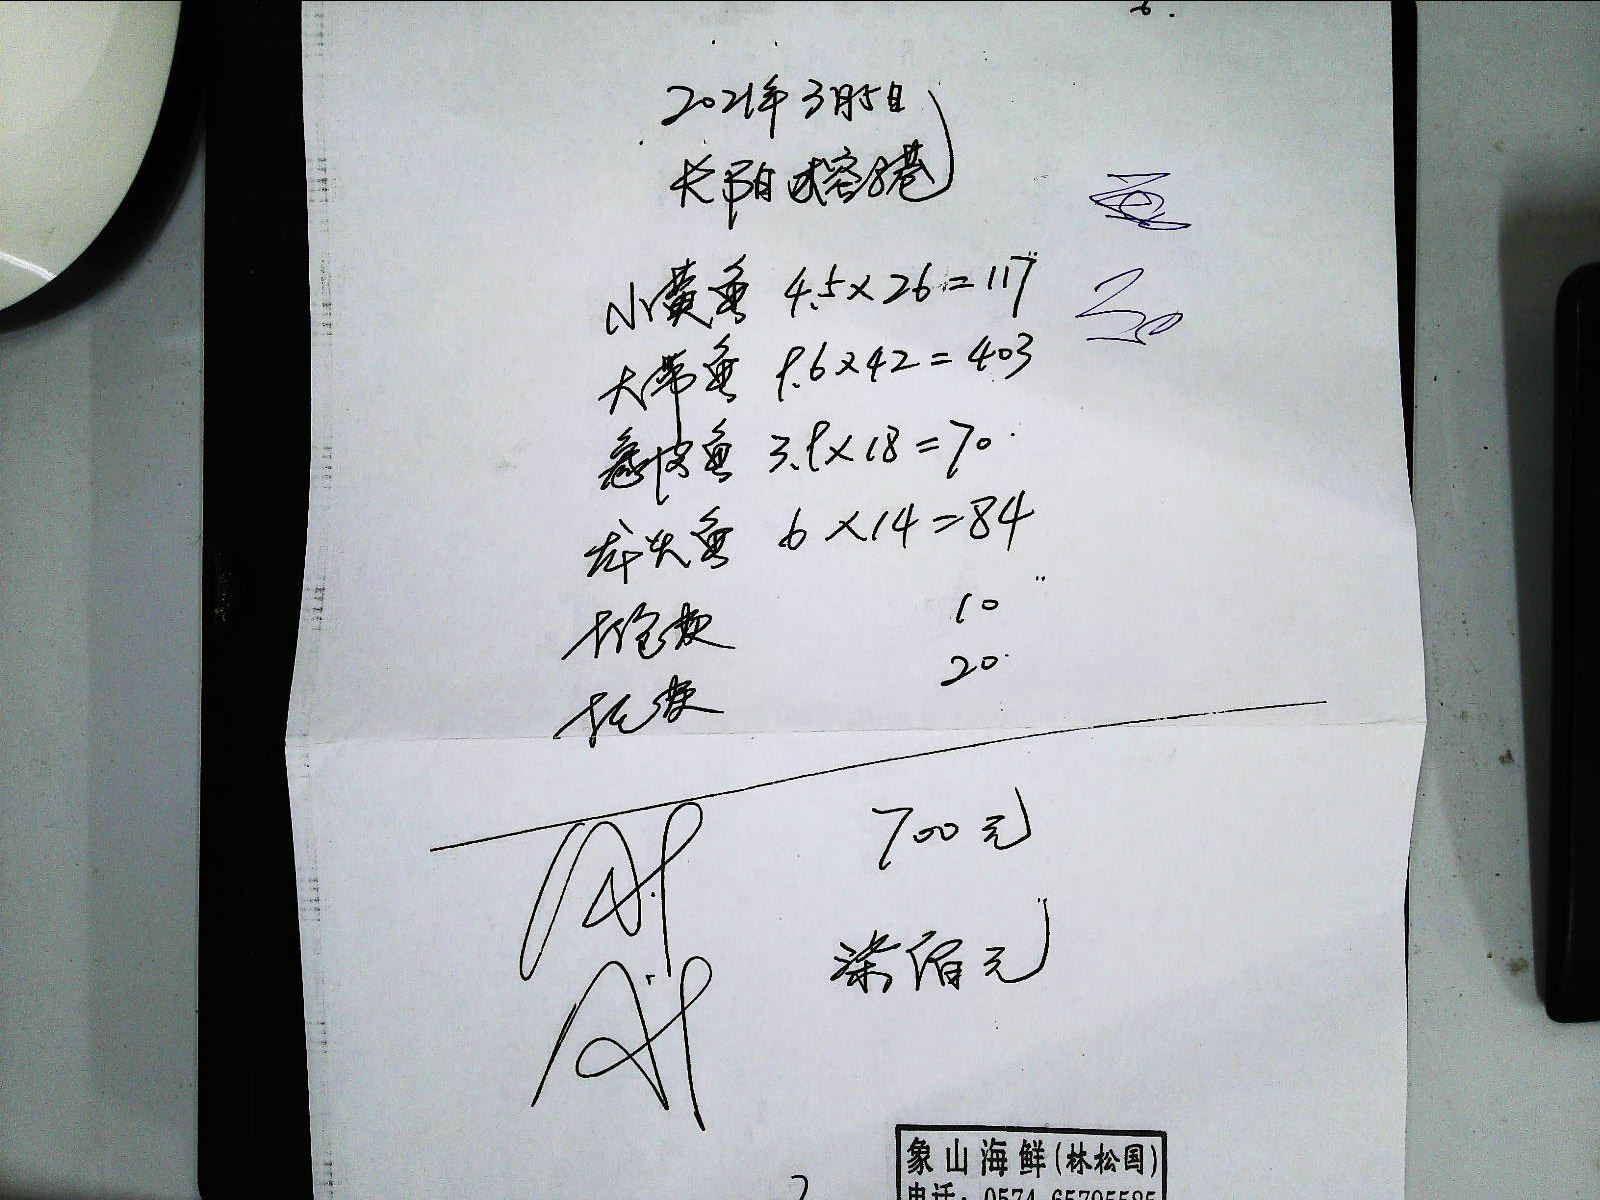 2021年3月5日
长阳味容8巷
小黄鱼 4.5×26=117
大带鱼 9.6×42=403
鱼 3.9×18=70
龙头鱼 6×14=84
打包费 10
托费 20
700元
柒佰元
象山海鲜(林松国)
电话: 0574-65795585